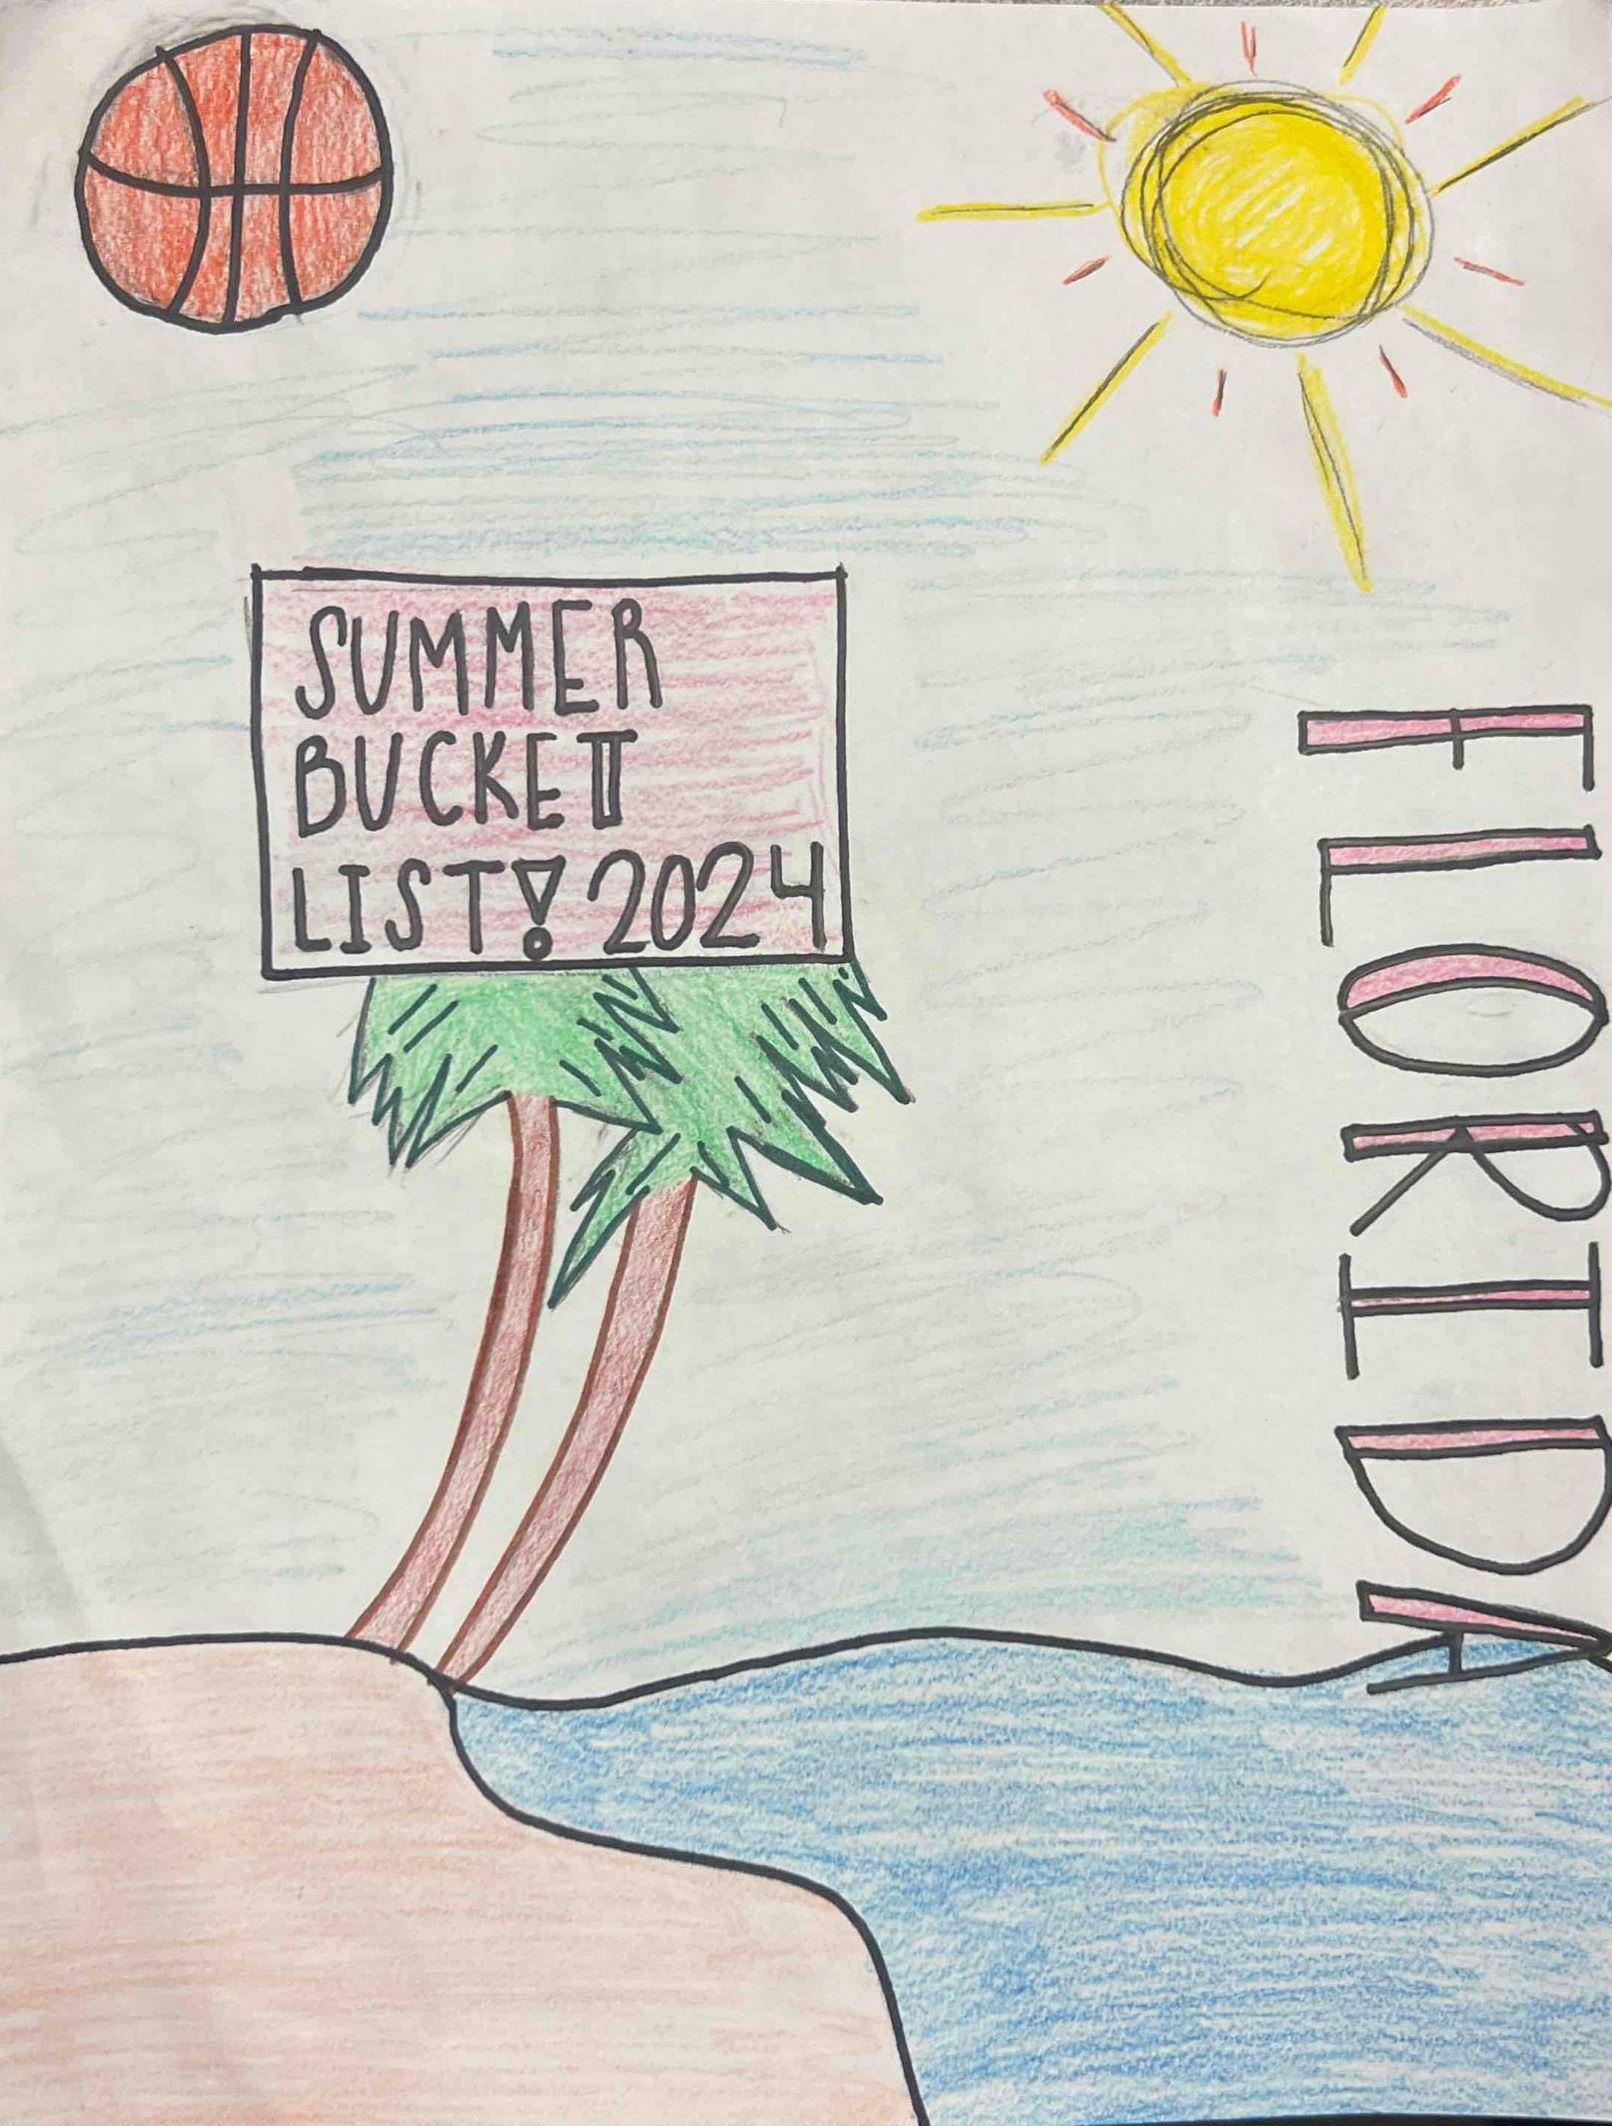 SUMMER
BUCKET
LIST! 2024
FLORIDA